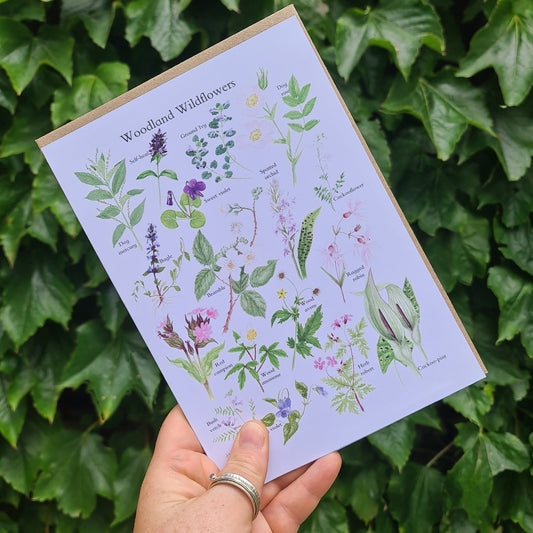 Woodland Wildflowers
Self-heal
Ground Ivy
Dog
Dog
mercury
Sweet violet
Spotted
orchid
Cuckooflower
Bugle
Bramble
Ragged
robin
Red
campion
Wood
anemone
Wood
Herb
robert
Cuckoo-pint
Bush
vetch